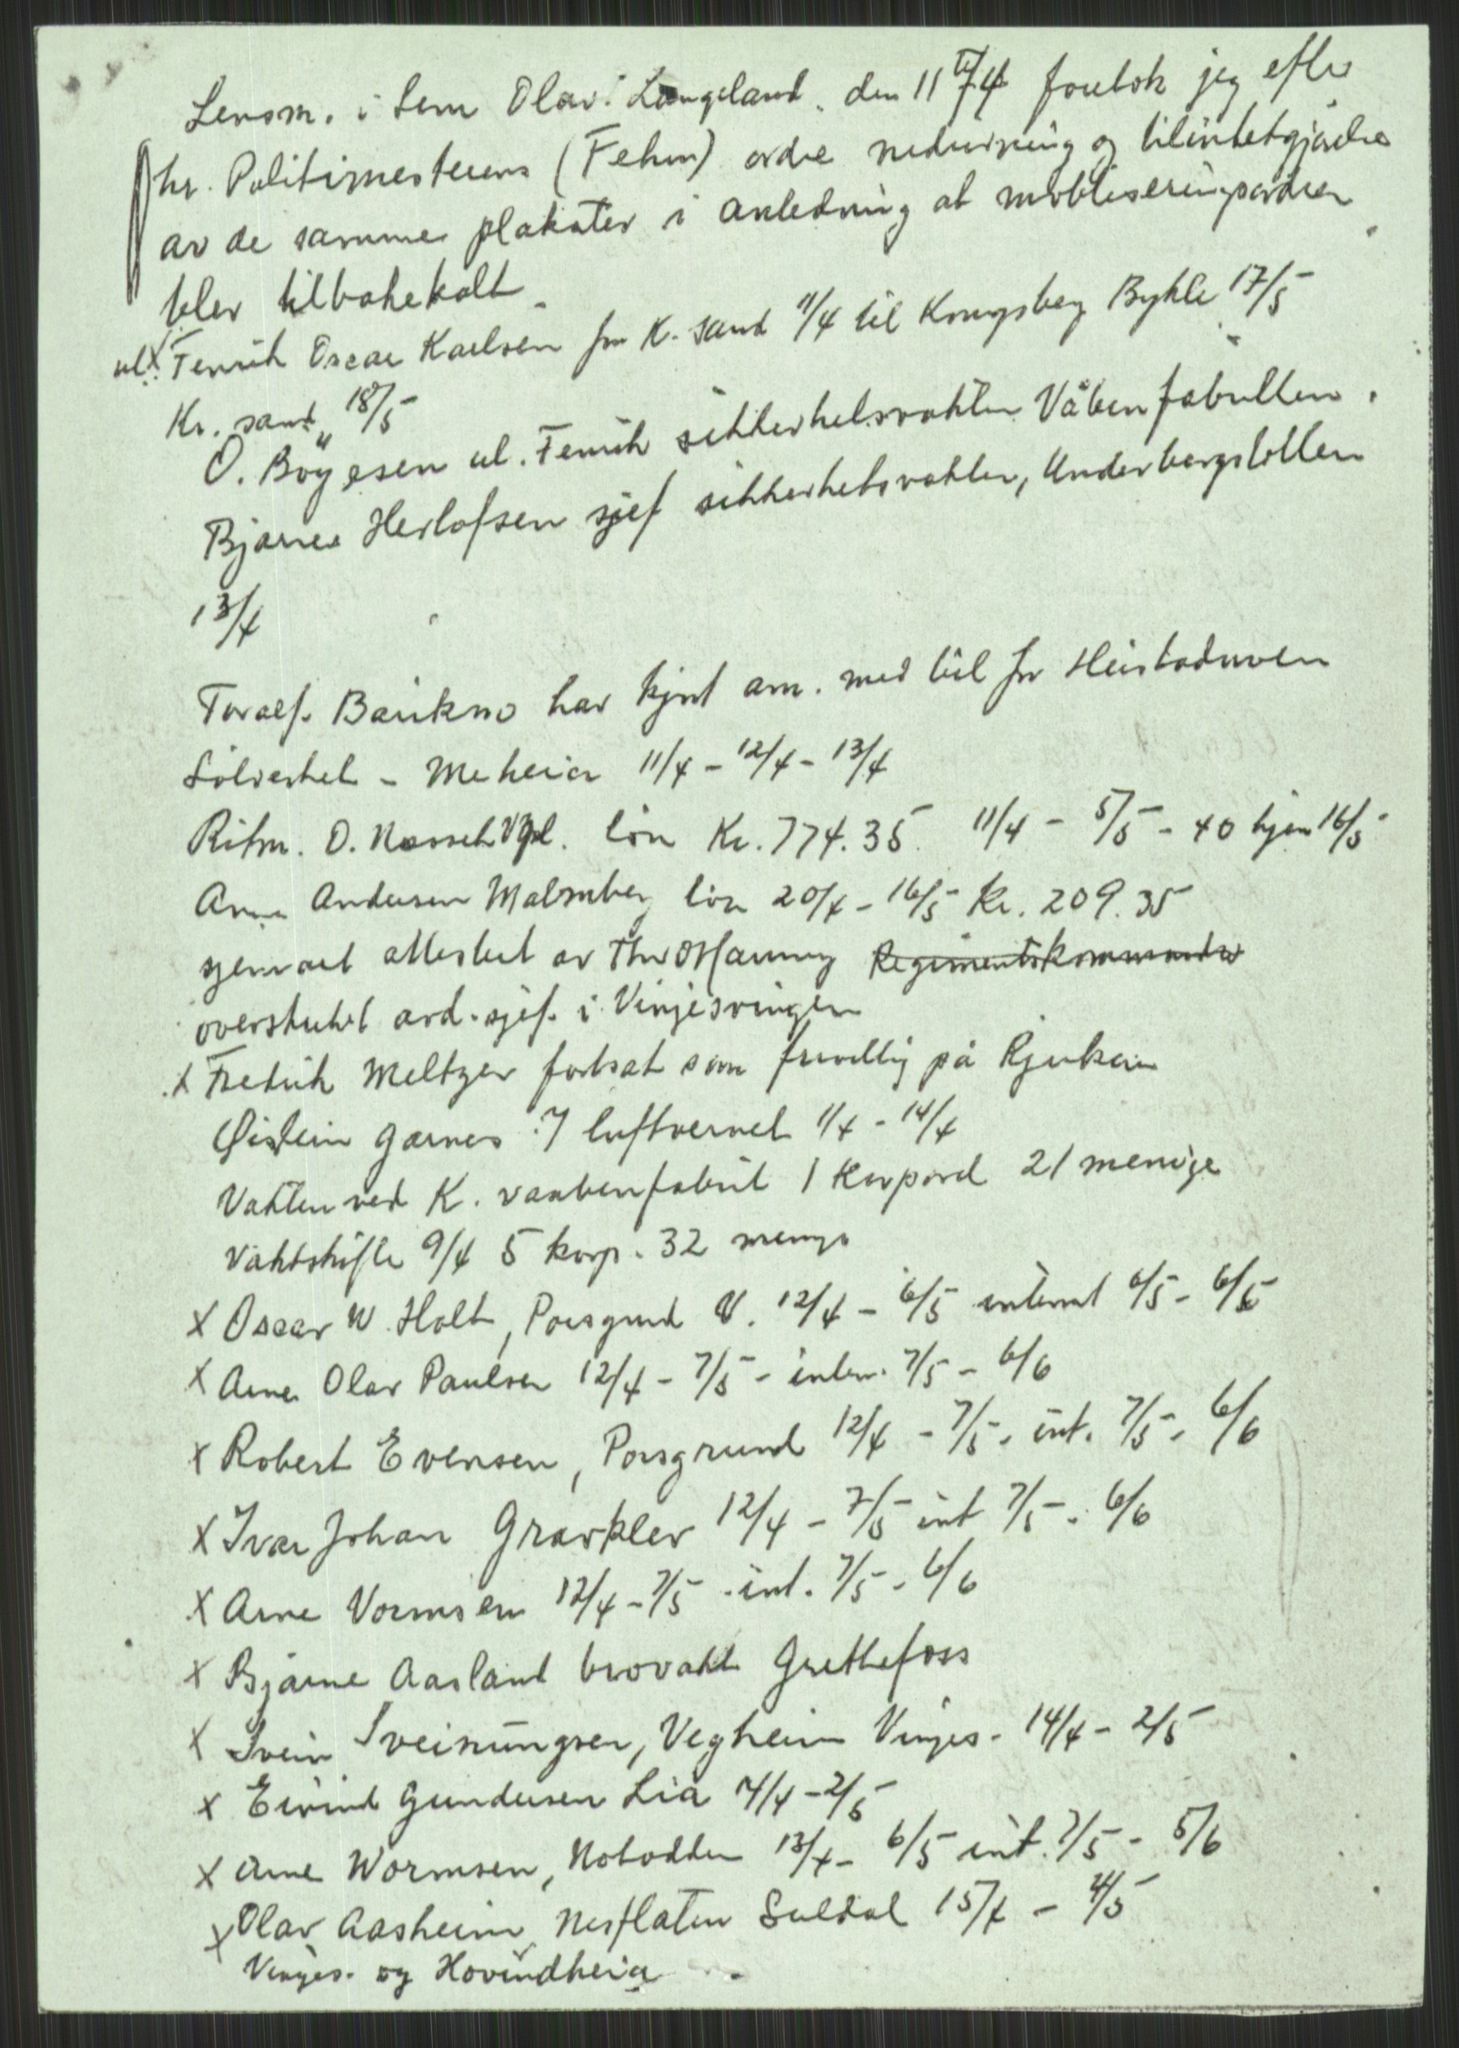 Lensm. i Sem Olav Langeland. den 11/4 foretok jeg efter
hr. Politimesterens (Fehn) ordre nedrivning og tilintetgjørelse
av de samme plakater i anledning at mobiliseringsordren
blev tilbakekalt
ul. X Fenrik Oscar Karlsen fra K. sand 11/4 til Kongsberg Bykle 17/5
Kr. sand 18/5
O. Boyesen ul. Fenrik sikkerhetsvakten Våbenfabrikken.
Bjarne Herlofsen sjef sikkerhetsvakten, Underbergstollen
13/4
Toralf. Bariknо har kjørt am. med bil fra Heistadmoen
Sølverket - Meheia 11/4 - 12/4 - 13/4
Ritm. O. Næss lön Kr. 774.35 11/4 - 5/5 - hjem 16/5
Arne Andersen Malmberg lön 20/4 - 16/5 Kr. 209.35
attestert av Thor O Hannevig Regimentskommandør
avd. sjef. i Vinjesvingen
X Fredrik Meltzer fortsat som frivillig på Rjukan
Øistein Garnes 7 luftvernet 1/4 - 14/4
Vakten ved K. vaabenfabrik 1 korporal 21 menige
Vaktskifte 9/4 5 korp. 32 menige
X Oscar W. Holt, Porsgrund V. 12/4 - 6/5 internert 6/5 - 6/6
X Arne Olav Paulsen 12/4 - 7/5 - intern. 7/5 - 6/6
X Robert Evensen, Porsgrund 12/4 - 7/5. int. 7/5 - 6/6
X Ivar Johan Gravklev 12/4 - 7/5 int 7/5 - 6/6
X Arne Vormsen 12/4 - 7/5 . int. 7/5 - 6/6
X Bjarne Aasland brovakt Grettefoss
X Svein Sveinungsen, Vegheim Vinjes. 14/4 - 2/5
X Eivind Gundersen Lia 14/4 - 2/5
X Arne Wormsen, Notodden 13/4 - 6/5 int. 7/5 - 5/6
X Olav Aasheim, Nesflaten Suldal 15/4 - 4/5
Vinjes. og Hovindheia